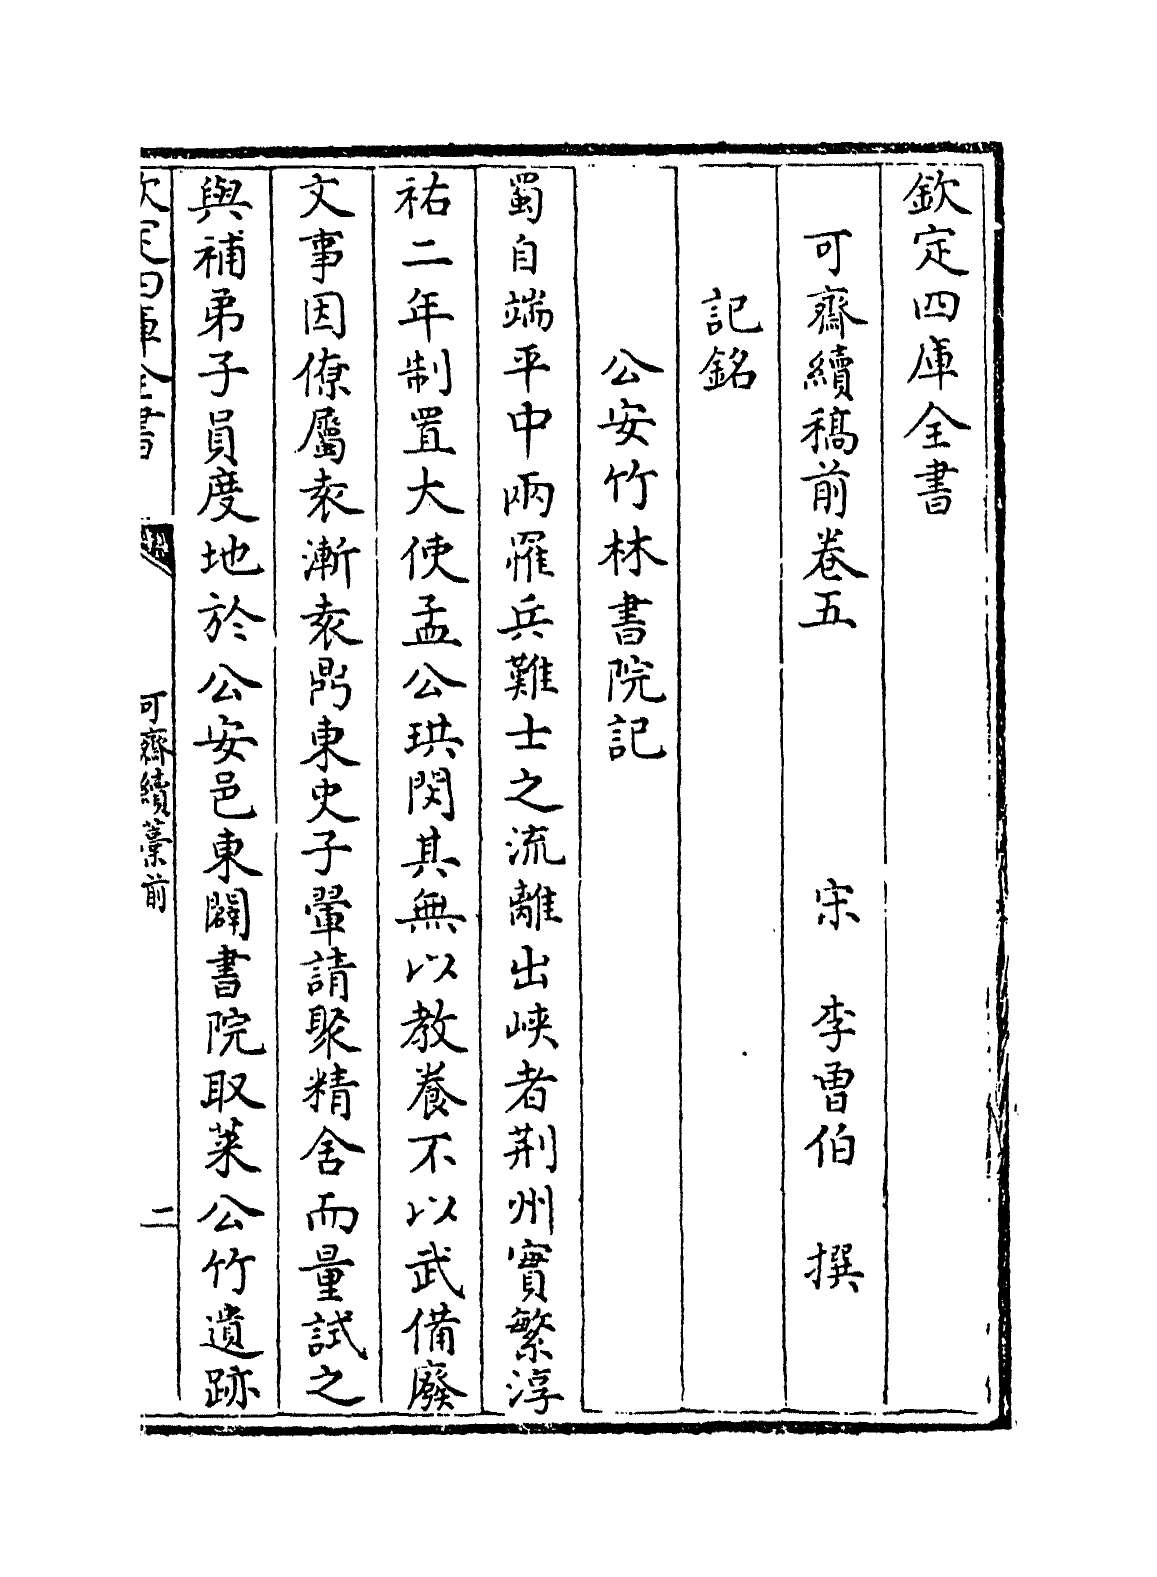 欽定四庫全書
可齋續稿前卷五
宋 李曾伯 撰
記銘
公安竹林書院記
蜀自端平中兩罹兵難士之流離出峽者荆州實繁淳
祐二年制置大使孟公珙閔其無以教養不以武備廢
文事因僚屬袁漸袁鼎東史子翬請聚精舍而量試之
與補弟子員度地於公安邑東闢書院取萊公竹遺跡
欽定四庫全書
可齋續藁前
二